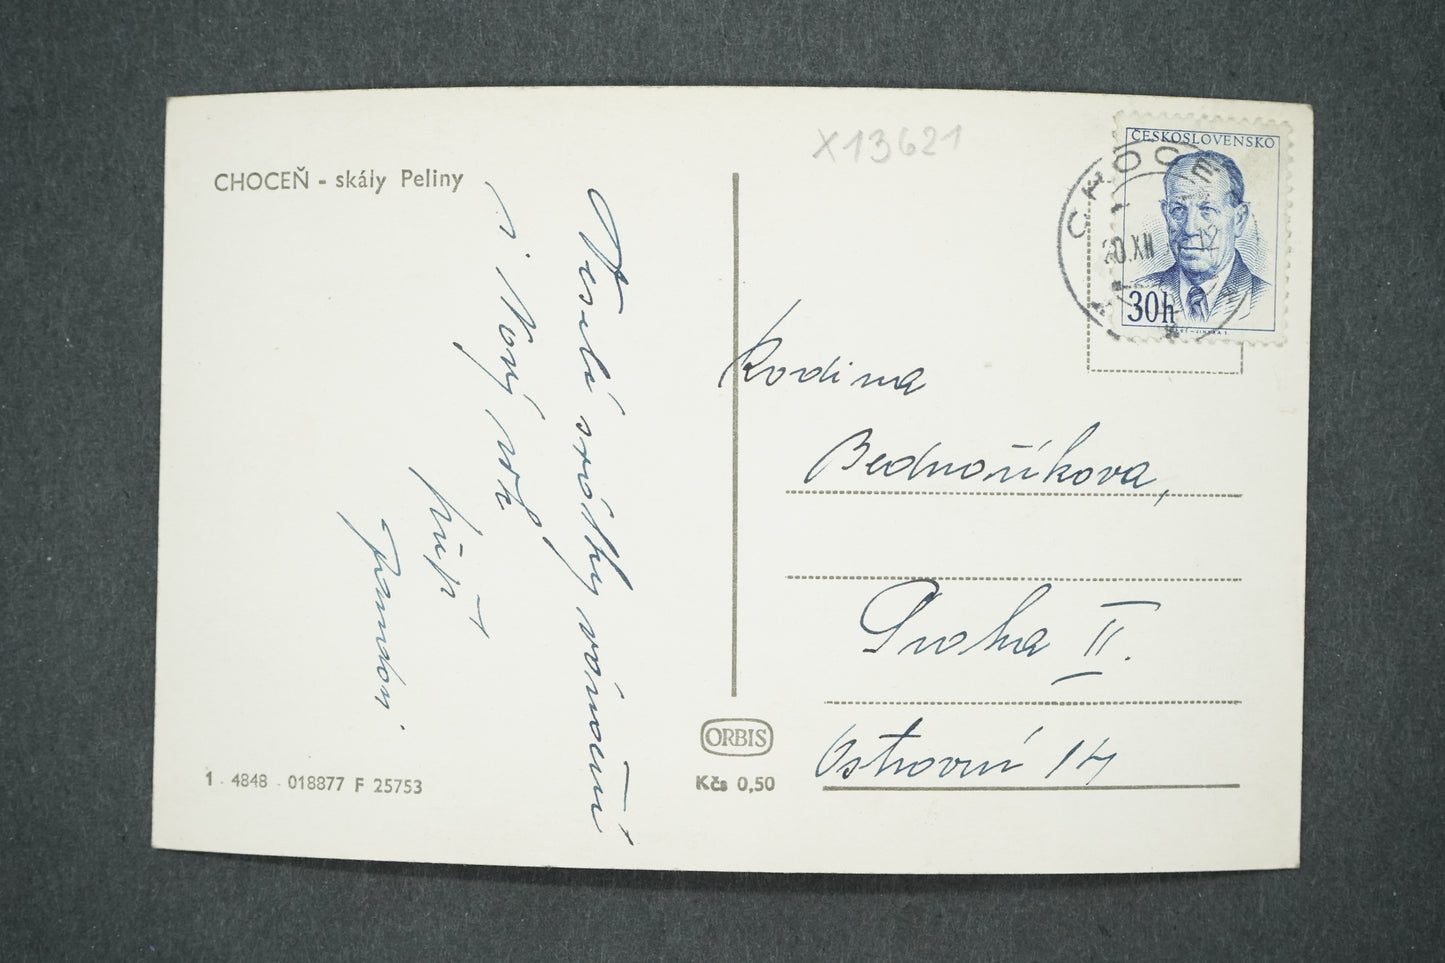 X13621
CHOCEŇ - skály Peliny
ČESKOSLOVENSKO
30h
CHOCEŇ
20.XII
Veselé svátky vánoční
a Nový rok
přejí
Rodina
Bednaříkova,
Praha II.
Ostrovní 14
ORBIS
Kčs 0,50
1 - 4848 - 018877 F 25753